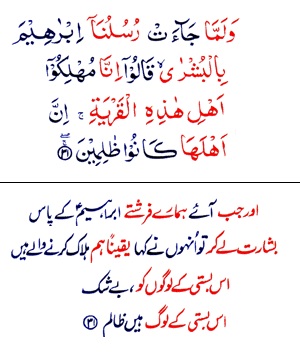 وَلَمَّا جَآءَتْ رُسُلُنَآ اِبْرٰهِيْمَ
بِالْبُشْرٰىۙ قَالُوْٓا اِنَّا مُهْلِكُوْٓا
اَهْلِ هٰذِهِ الْقَرْيَةِۚ اِنَّ
اَهْلَهَا كَانُوْا ظٰلِمِيْنَ ﴿۳۱﴾
اور جب آئے ہمارے فرشتے ابراہیمؑ کے پاس
بشارت لے کر تو اُنہوں نے کہا یقیناً ہم ہلاک کرنے والے ہیں
اس بستی کے لوگوں کو، بے شک
اس بستی کے لوگ ہیں ظالم ﴿۳۱﴾